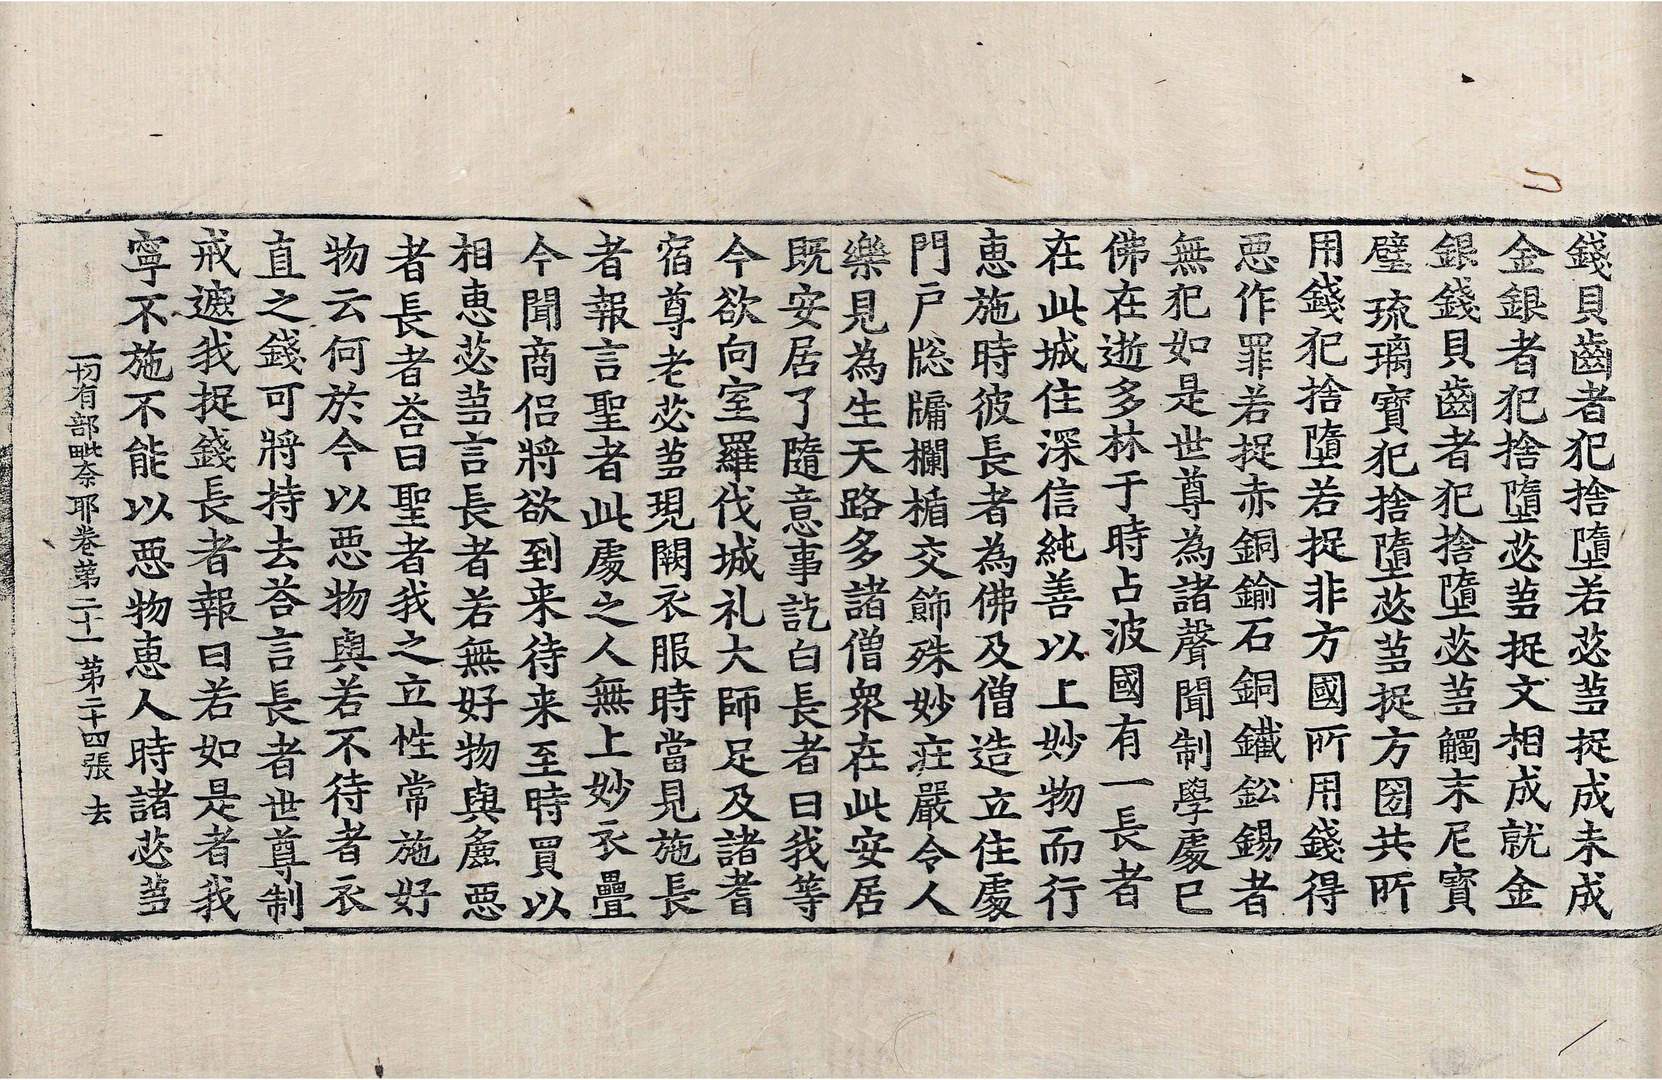 錢貝齒者犯捨墮若苾芻捉成未成
金銀者犯捨墮苾芻捉文相成就金
銀錢貝齒者犯捨墮苾芻觸末尼寶
璧琉璃寶犯捨墮苾芻捉方圀共所
用錢犯捨墮若捉非方國所用錢得
惡作罪若捉赤銅鍮石銅鐵鈆錫者
無犯如是世尊為諸聲聞制學處已
佛在逝多林于時占波國有一長者
在此城住深信純善以上妙物而行
惠施時彼長者為佛及僧造立住處
門戶牎牖欄楯交飾殊妙莊嚴令人
樂見為生天路多諸僧衆在此安居
既安居了隨意事訖白長者曰我等
今欲向室羅伐城礼大師足及諸耆
宿尊老苾芻現闕衣服時當見施長
者報言聖者此處之人無上妙衣疊
今聞商侶將欲到来待来至時買以
相惠苾芻言長者若無好物與麁惡
者長者荅曰聖者我之立性常施好
物云何於今以惡物與若不待者衣
直之錢可將持去荅言長者世尊制
戒遮我捉錢長者報曰若如是者我
寧不施不能以惡物惠人時諸苾芻
一切有部毗奈耶卷第二十一 第二十四張 去